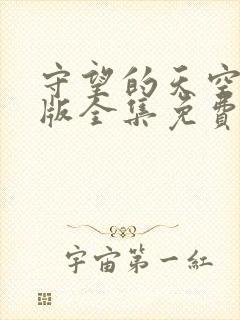 守望的天空
版全集免費
宇宙第一紅